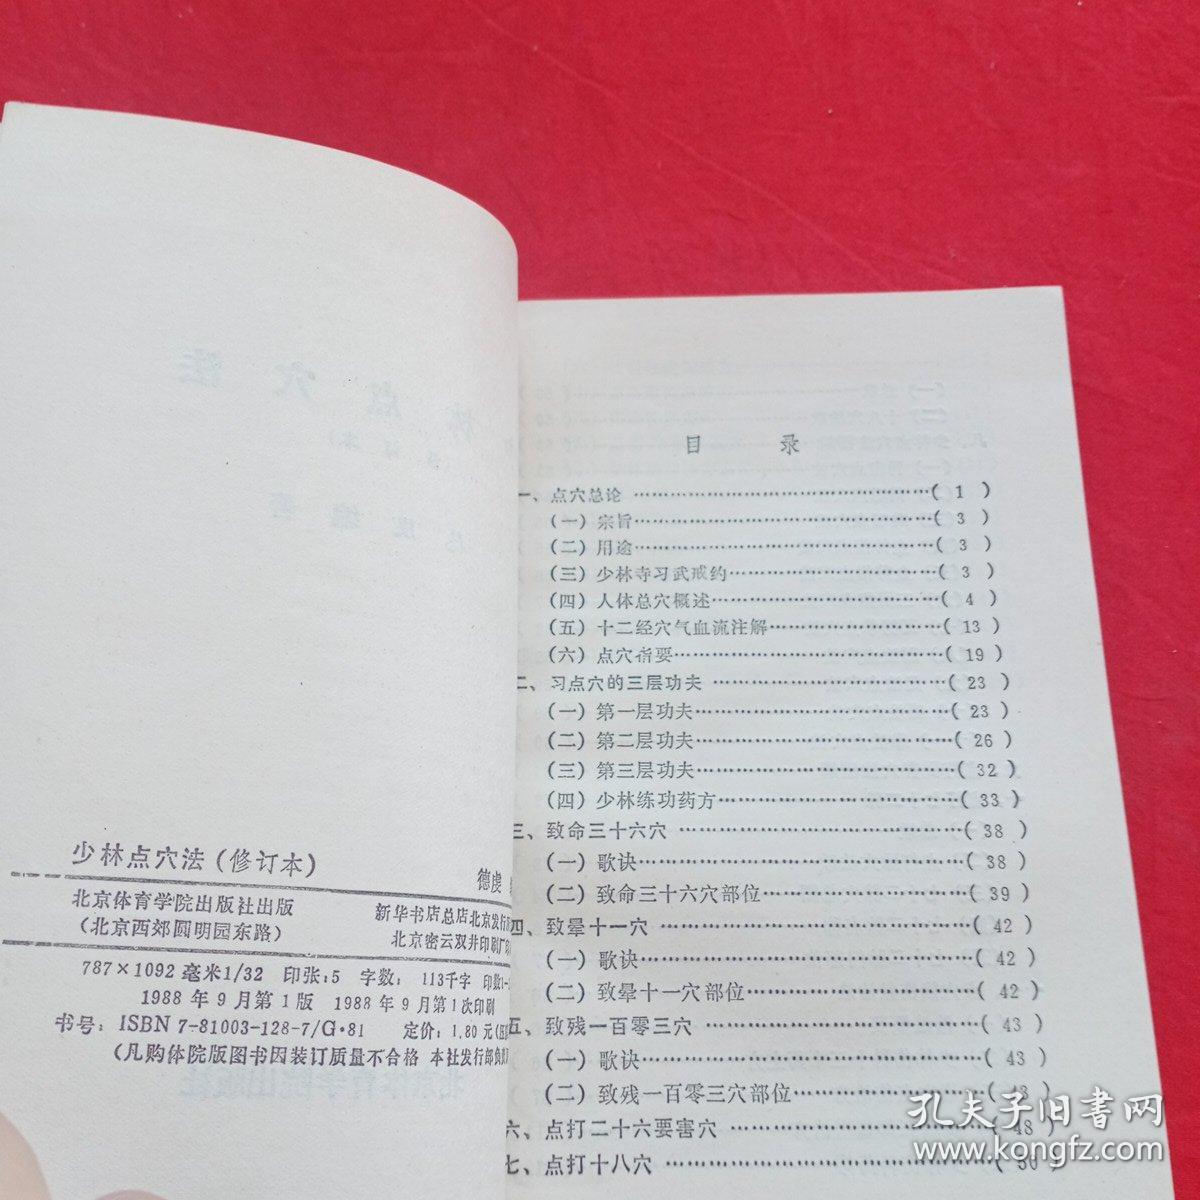 少林点穴法(修订本)
德虔
北京体育学院出版社出版
(北京西郊圆明园东路)
新华书店总店北京发行
北京密云双井印刷厂
787×1092毫米1/32 印张:5 字数: 113千字 印数1-
1988年9月第1版 1988年9月第1次印刷
书号: ISBN 7-81003-128-7/G·81 定价: 1.80元
(凡购体院版图书因装订质量不合格 本社发行部负
目 录
一、点穴总论 ……( 1 )
(一)宗旨……( 3 )
(二)用途……( 3 )
(三)少林寺习武戒约……( 3 )
(四)人体总穴概述……( 4 )
(五)十二经穴气血流注解……( 13 )
(六)点穴指要……( 19 )
二、习点穴的三层功夫 ……( 23 )
(一)第一层功夫……( 23 )
(二)第二层功夫……( 26 )
(三)第三层功夫……( 32 )
(四)少林练功药方……( 33 )
三、致命三十六穴 ……( 38 )
(一)歌诀……( 38 )
(二)致命三十六穴部位……( 39 )
四、致晕十一穴 ……( 42 )
(一)歌诀……( 42 )
(二)致晕十一穴部位……( 42 )
五、致残一百零三穴 ……( 43 )
(一)歌诀……( 43 )
(二)致残一百零三穴部位……( 43 )
六、点打二十六要害穴 ……( 48 )
七、点打十八穴 ……( 50 )
孔夫子旧书网
www.kongfz.com